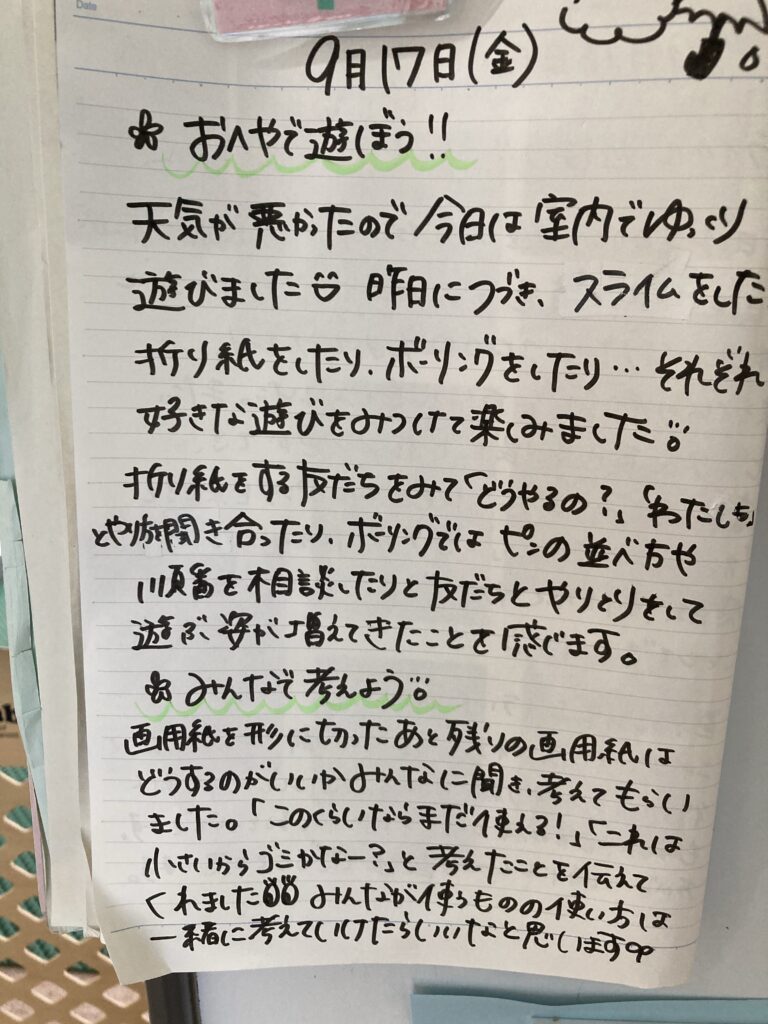 Date
9月17日(金)
おへやで遊ぼう!!
天気が悪かったので今日は室内でゆっくり
遊びました 昨日につづき、スライムをした
折り紙をしたり、ボーリングをしたり…それぞれ
好きな遊びをみつけて楽しみました
折り紙をする友だちをみて「どうやるの?」「わたしも」
とやり方を聞き合ったり、ボーリングではピンの並べ方や
順番を相談したりと友だちとやりとりをして
遊ぶ姿が増えてきたことを感じます。
みんなで考えよう
画用紙を形に切ったあと残りの画用紙は
どうするのがいいかみんなに聞き、考えてもらい
ました。「このくらいならまだ使える!」「これは
小さいからゴミかなー?」と考えたことを伝えて
くれました みんなが使うものの使い方は
一緒に考えていけたらいいなと思います